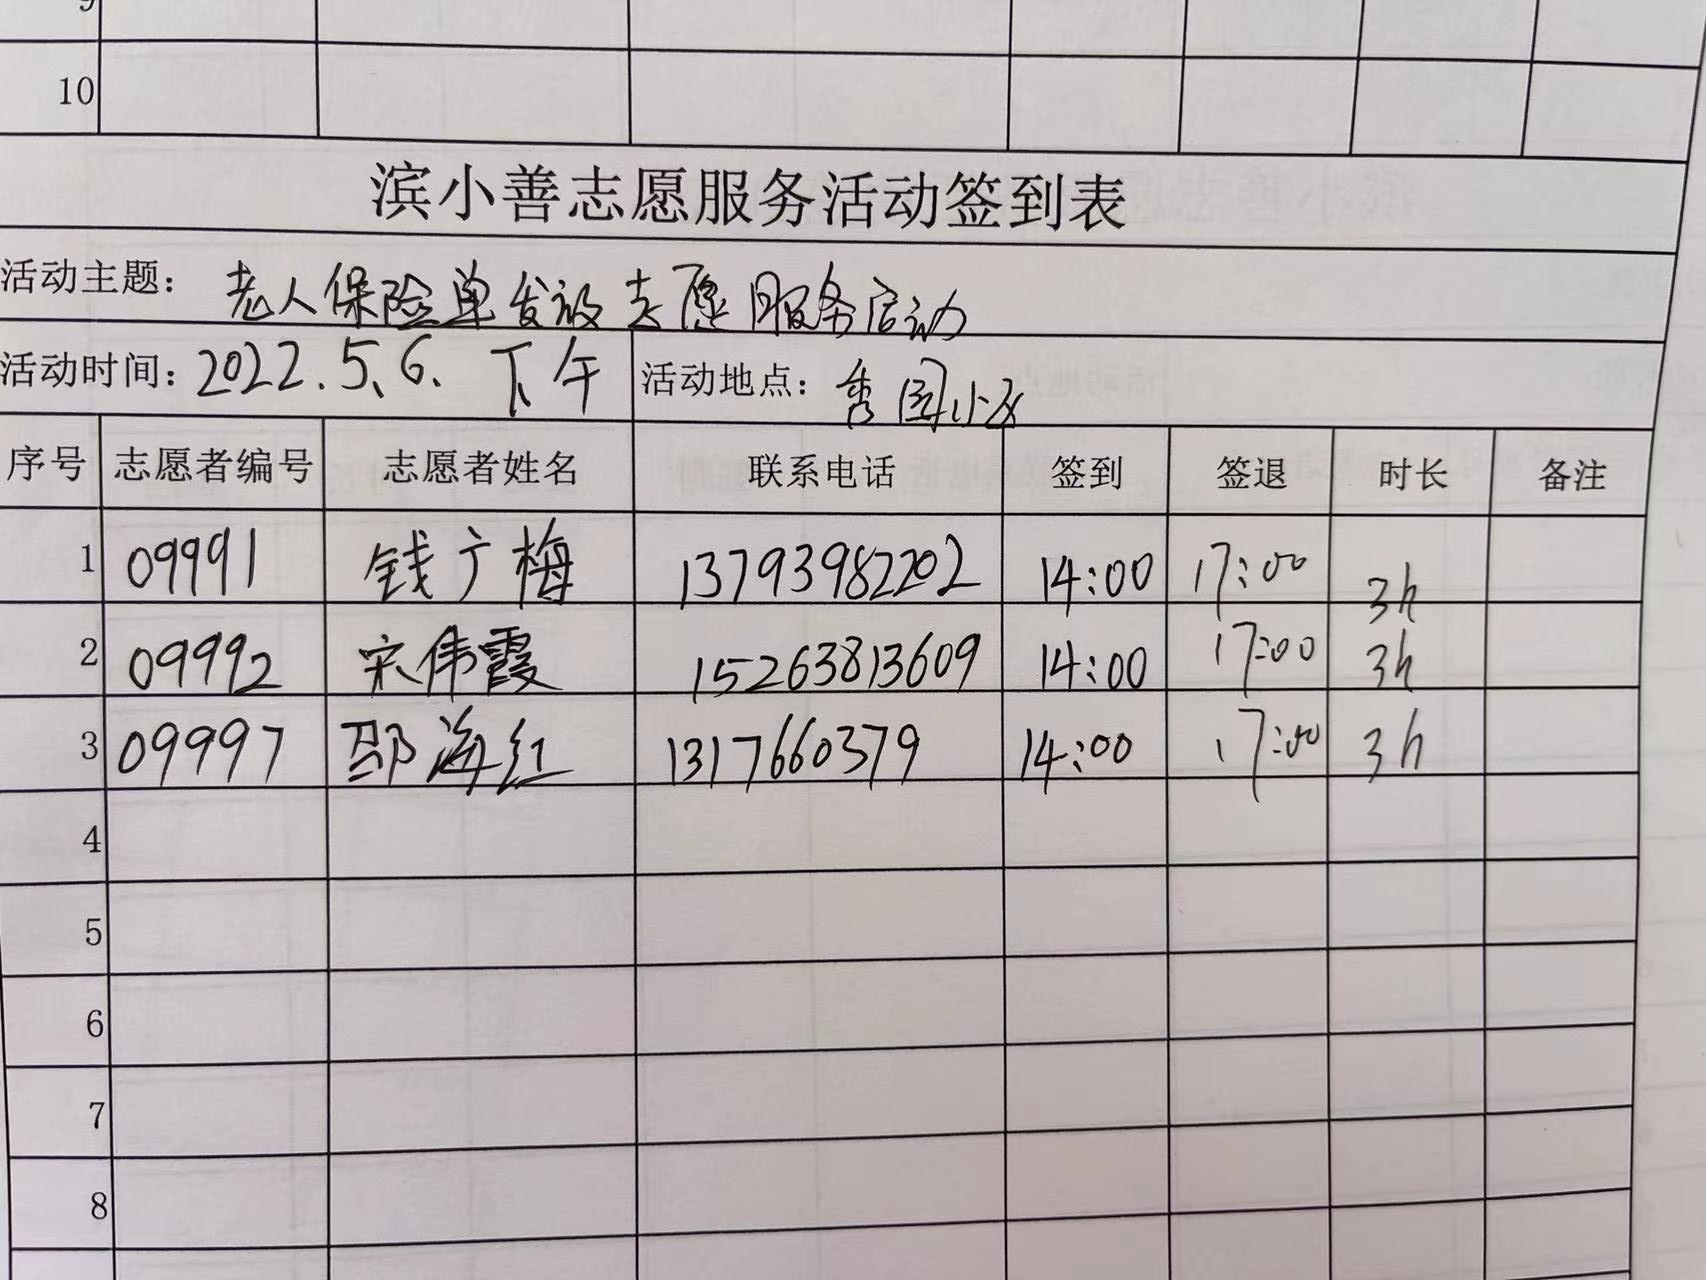 9
10
滨小善志愿服务活动签到表
活动主题: 老人保险单发放志愿服务启动
活动时间: 2022.5、6. 下午 活动地点: 秀园小区
序号 志愿者编号 志愿者姓名 联系电话 签到 签退 时长 备注
1 09991 钱广梅 13793982202 14:00 17:00 3h
2 09992 宋伟霞 15263813609 14:00 17:00 3h
3 09997 邵海红 1317660379 14:00 17:00 3h
4
5
6
7
8